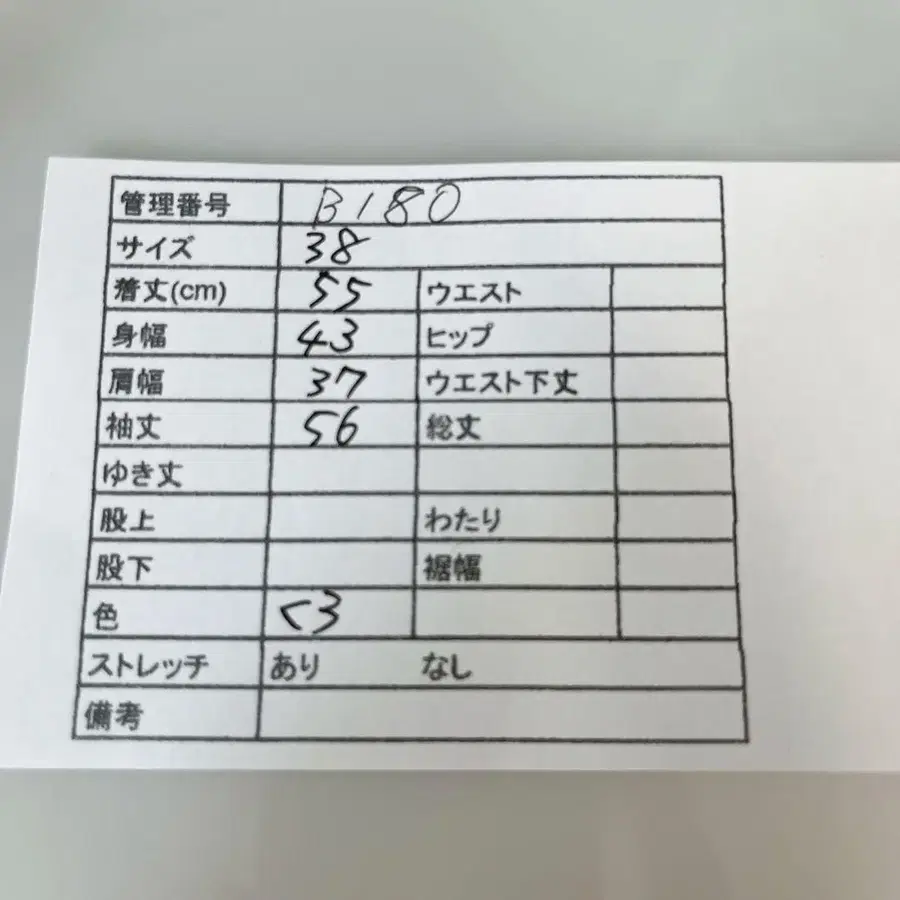 管理番号 B180
サイズ 38
着丈(cm) 55 ウエスト
身幅 43 ヒップ
肩幅 37 ウエスト下丈
袖丈 56 総丈
ゆき丈
股上 わたり
股下 裾幅
色 くろ
ストレッチ あり なし
備考